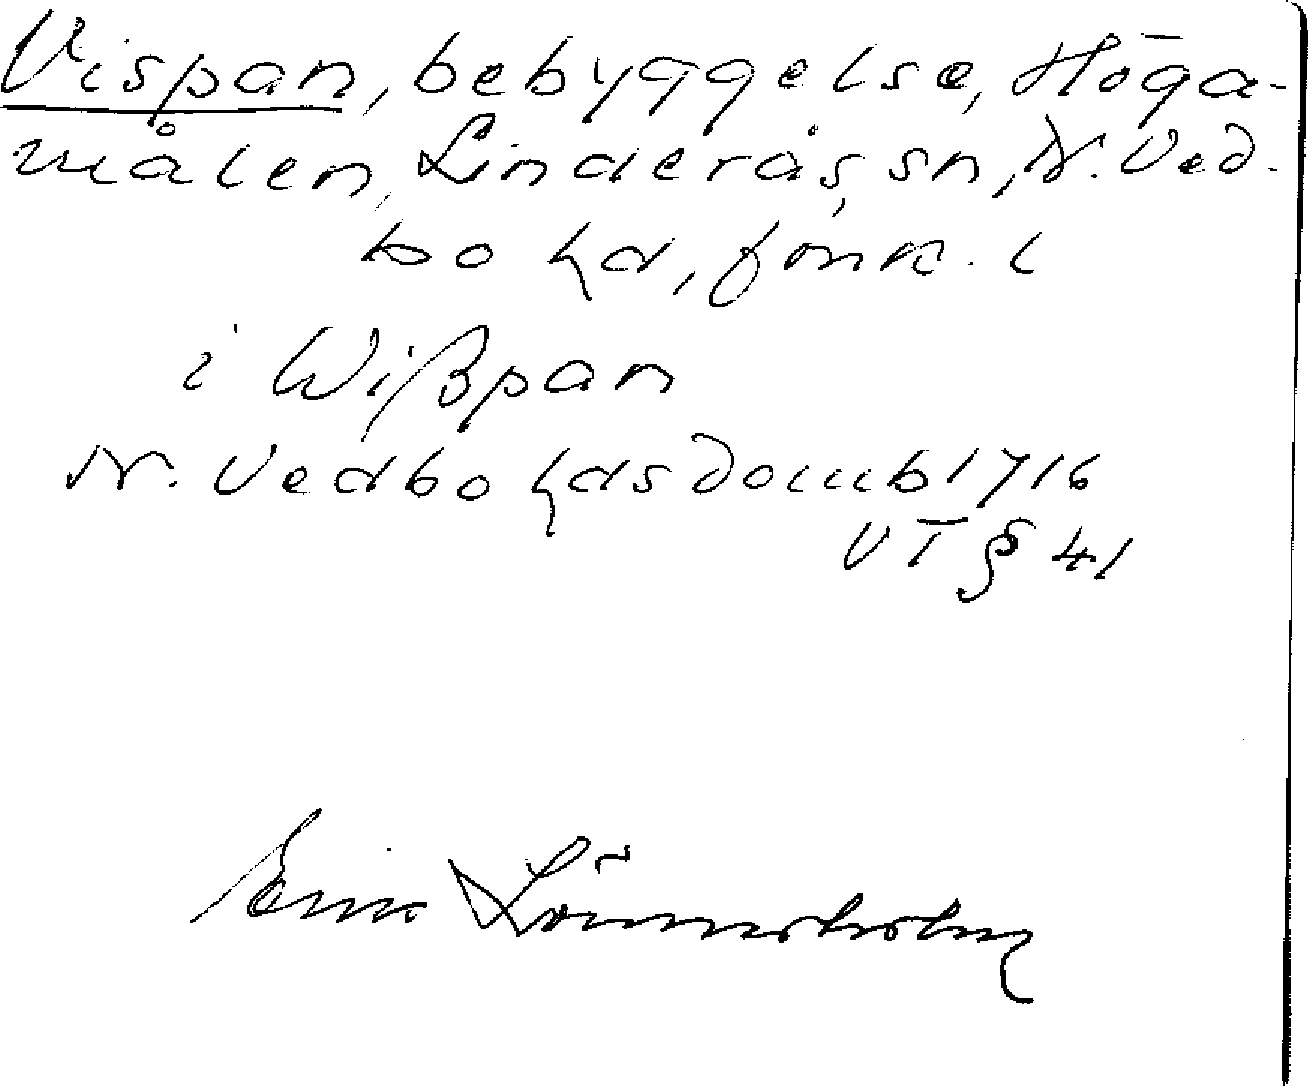 Vispan, bebyggelse, Höga-
målen, Linderås sn, N. Ved-
bo hd, Jönk. l
i Wißpan
N. Vedbo hds domb 1716
VT § 41
Erik Lönnerholm